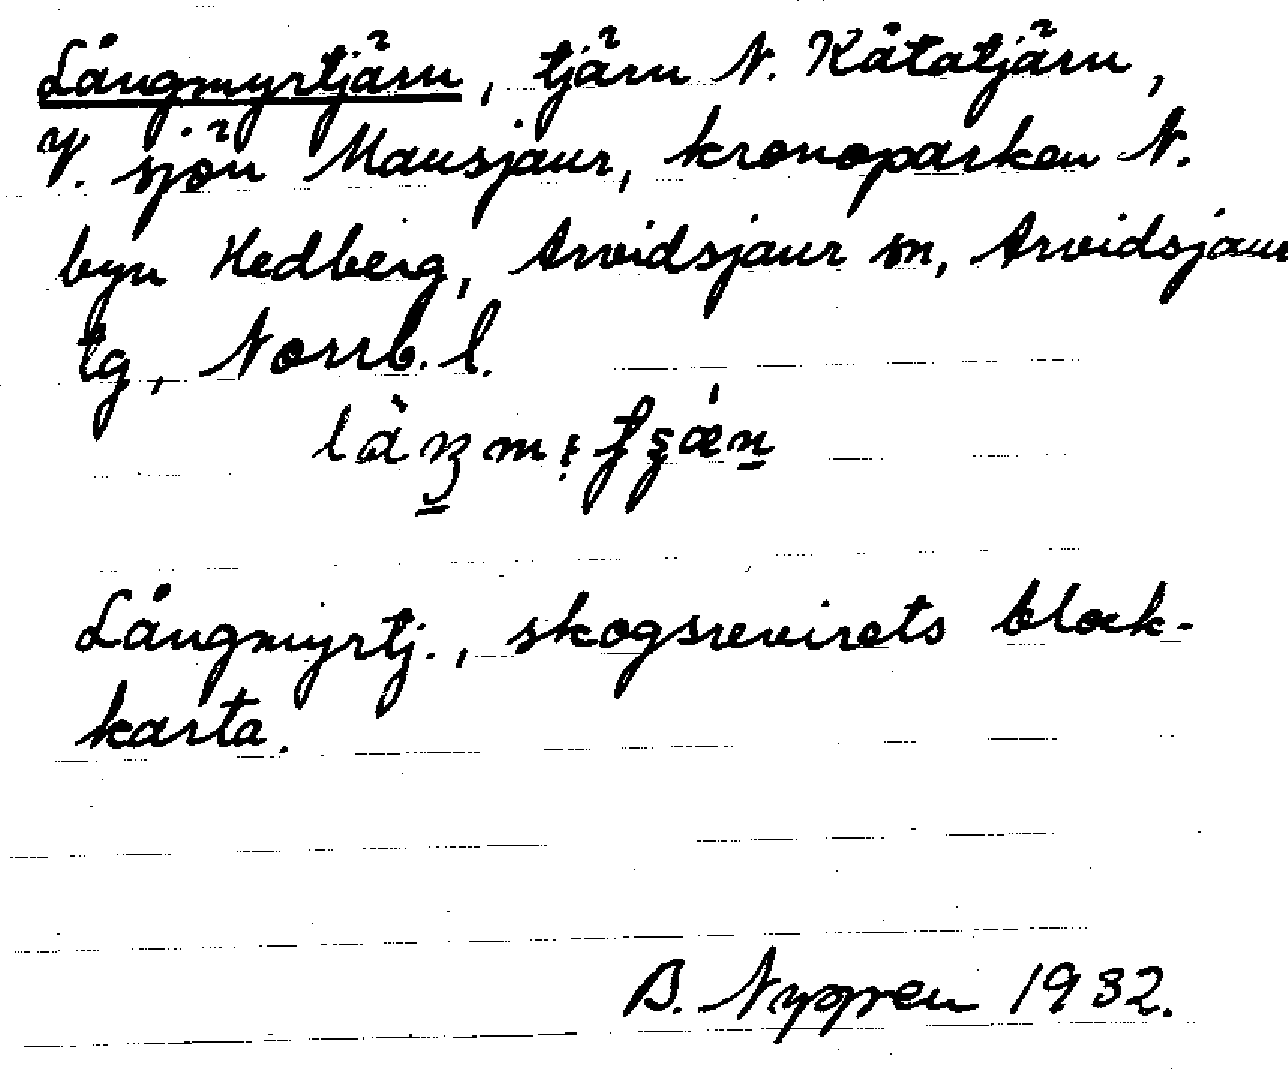 Långmyrtjärn, tjärn N. Kåtatjärn,
V. sjön Mausjaur, kronoparken N.
byn Hedberg, Arvidsjaur sn, Arvidsjaur
tg, Norrb. l.
Långmyrtj., skogsrevirets block-
karta.
B. 1932.